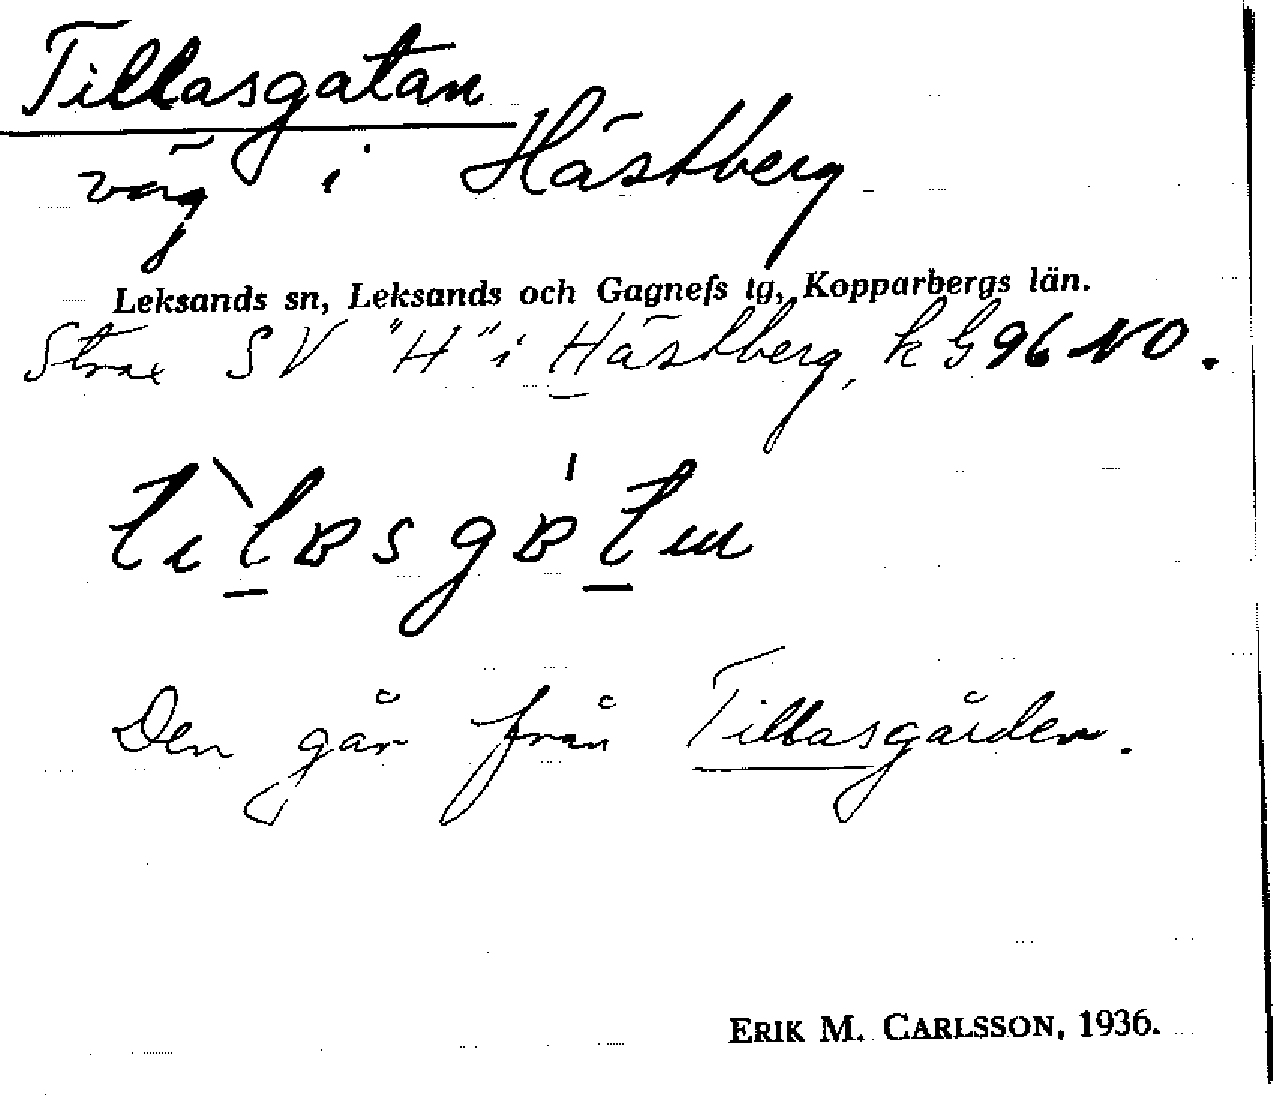 Tillasgatan
väg i Hästberg
Leksands sn, Leksands och Gagnefs tg, Kopparbergs län.
Strax SV "H" i Hästberg, k G 96 NO.
Den går från Tillasgården.
ERIK M. CARLSSON, 1936.